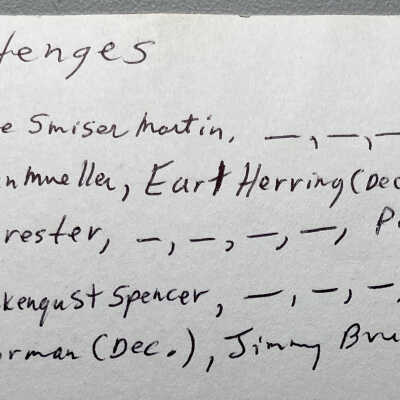 tenges
e Smiser Martin, —, —, —
nmueller, Earl Herring (Dec
rester, —, —, —, —, P
kenqust Spencer, —, —, —,
orman (Dec.), Jimmy Bru